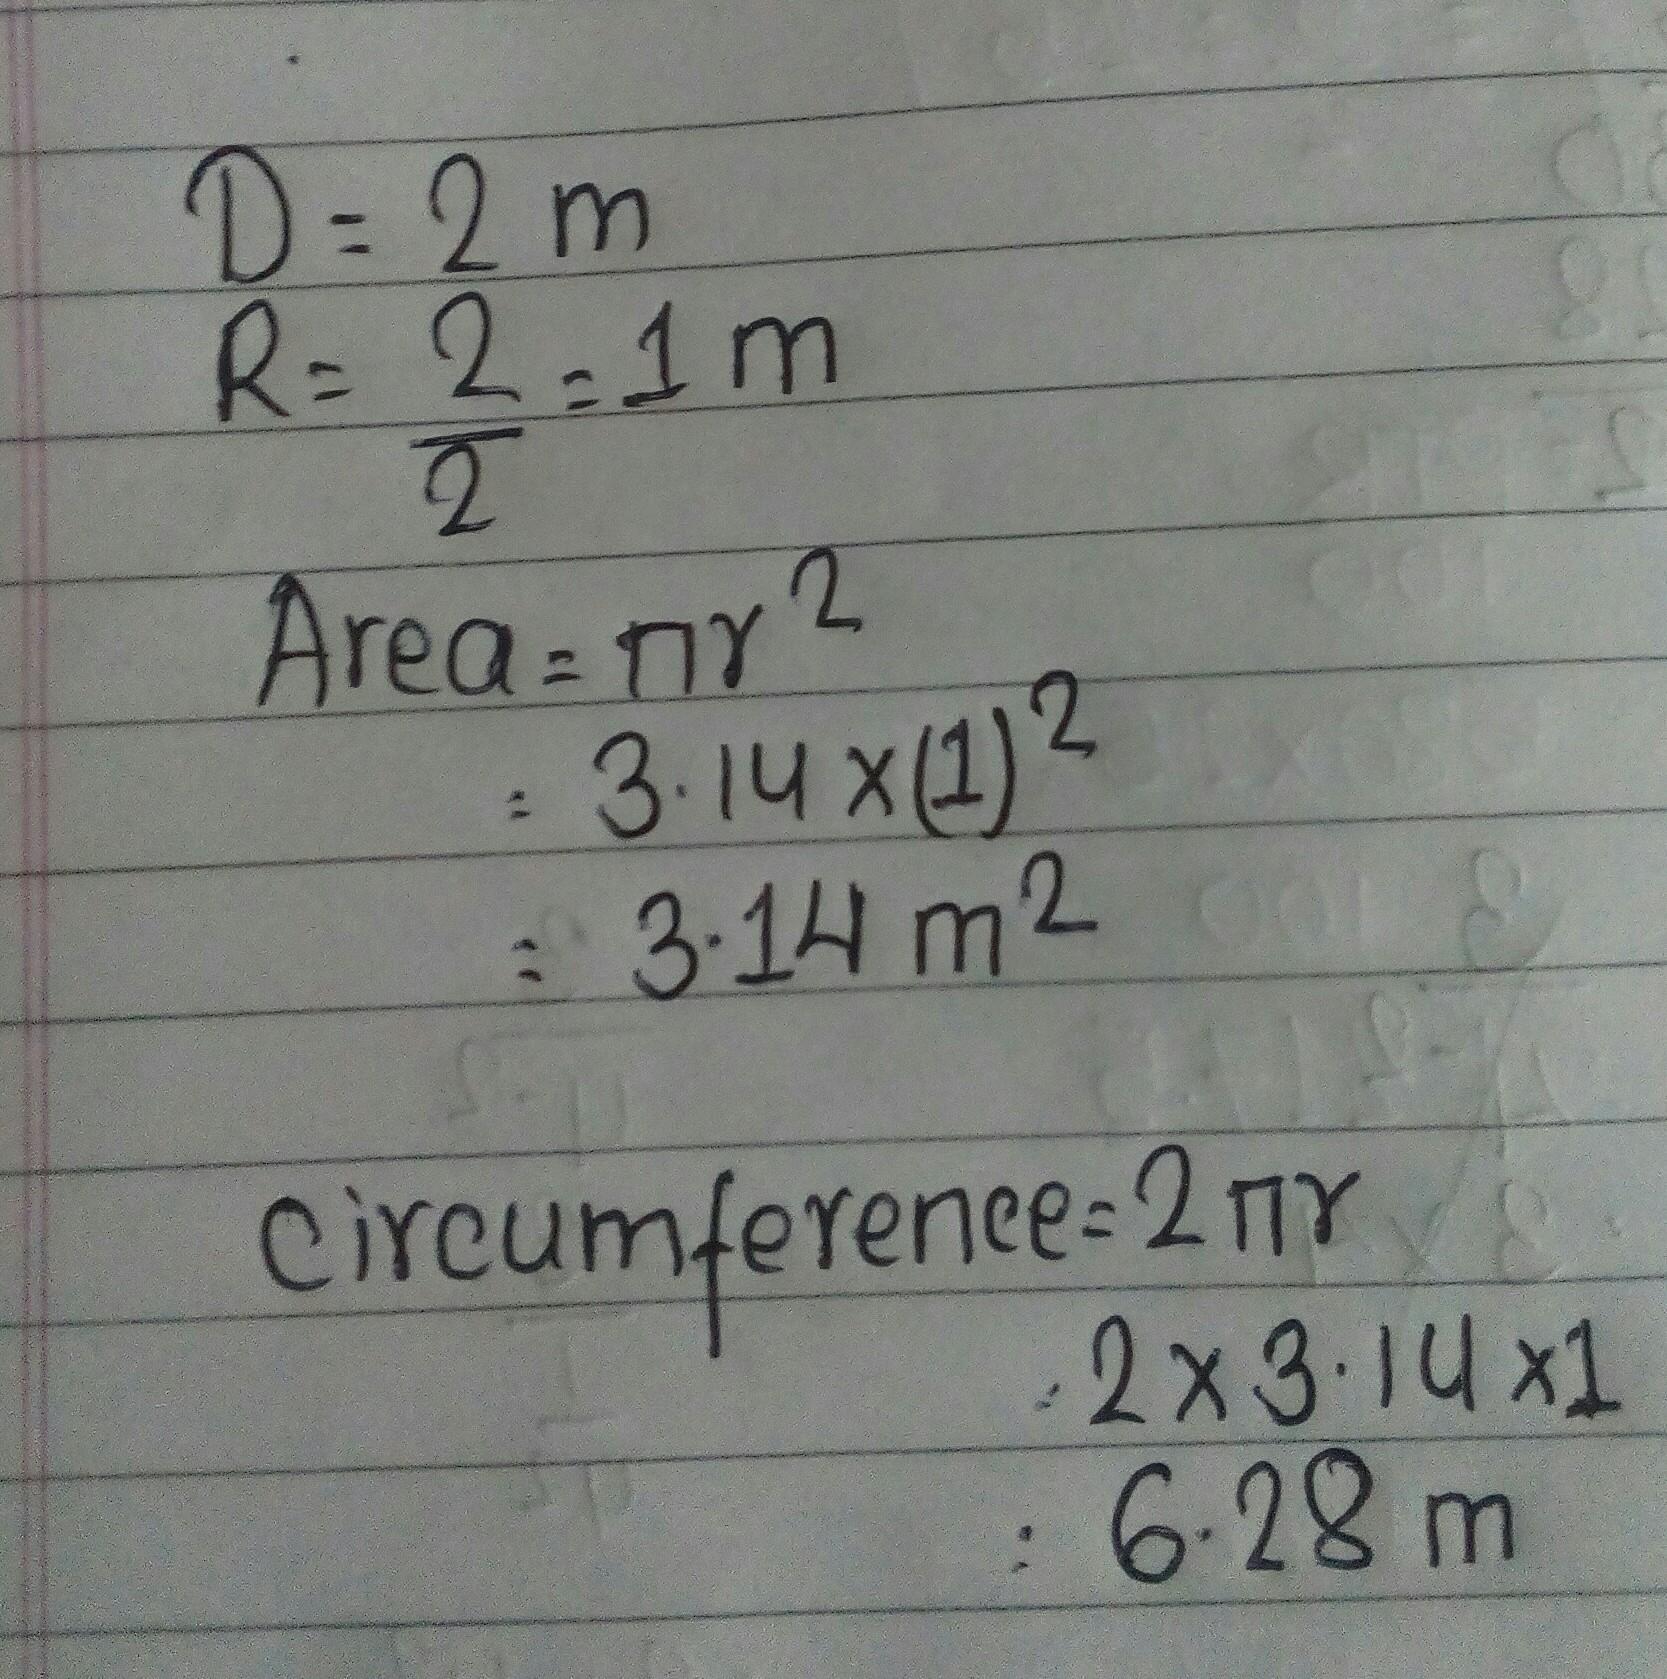 D = 2 m
R = 2/2 = 1 m
Area = πr²
= 3.14 x (1)²
= 3.14 m²
Circumference = 2πr
= 2 x 3.14 x 1
= 6.28 m